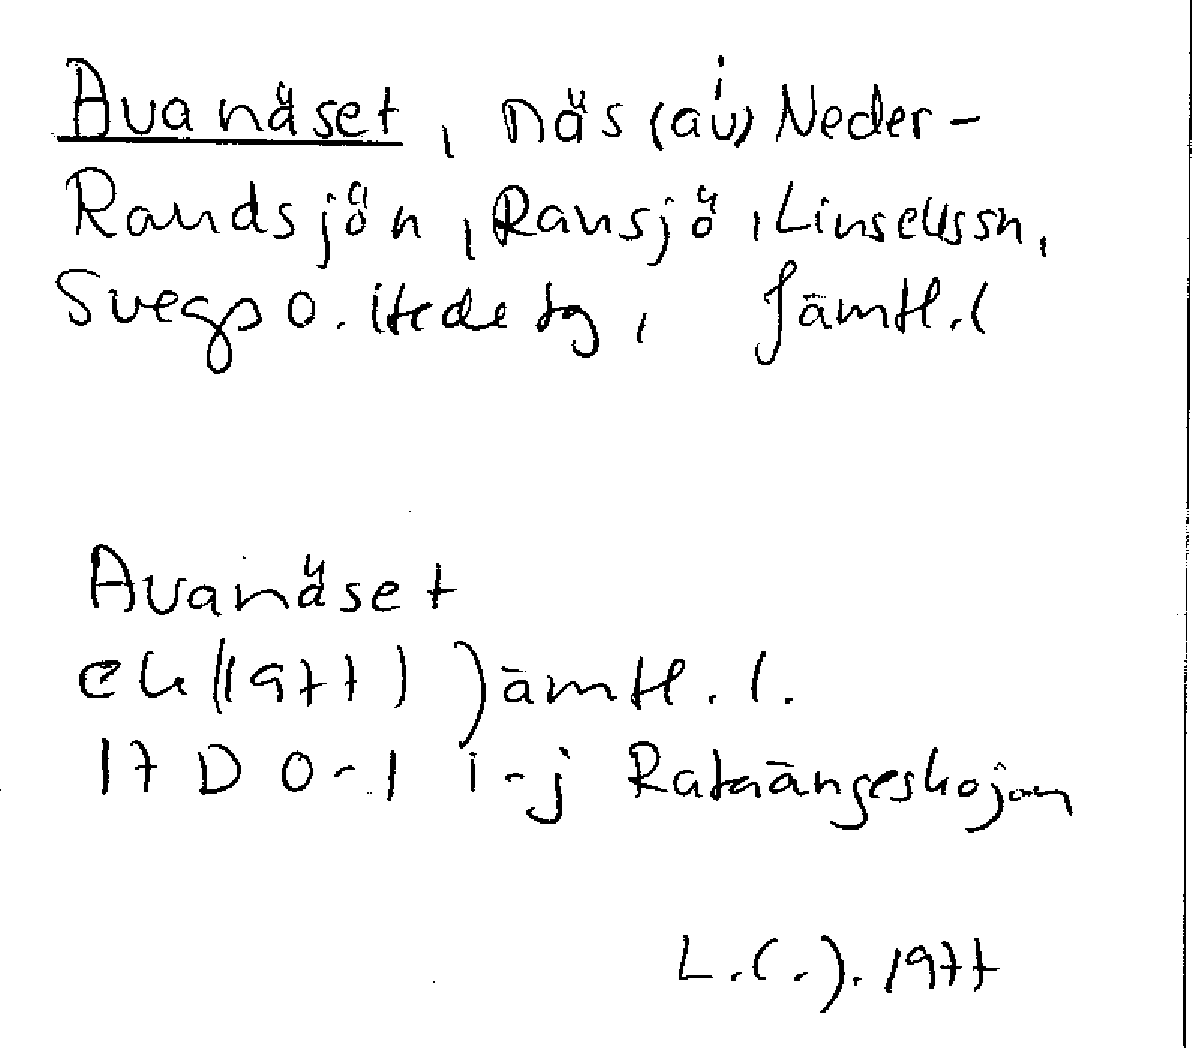 Avanäset, näs (av) i Neder-
Randsjön, Ransjö, Linsellssn,
Svegs o. Hede tg, Jämtl. l
Avanäset
ek (1977) Jämtl. l.
17 D 0-1 i-j Rataängeskojan
L.C.J. 1977